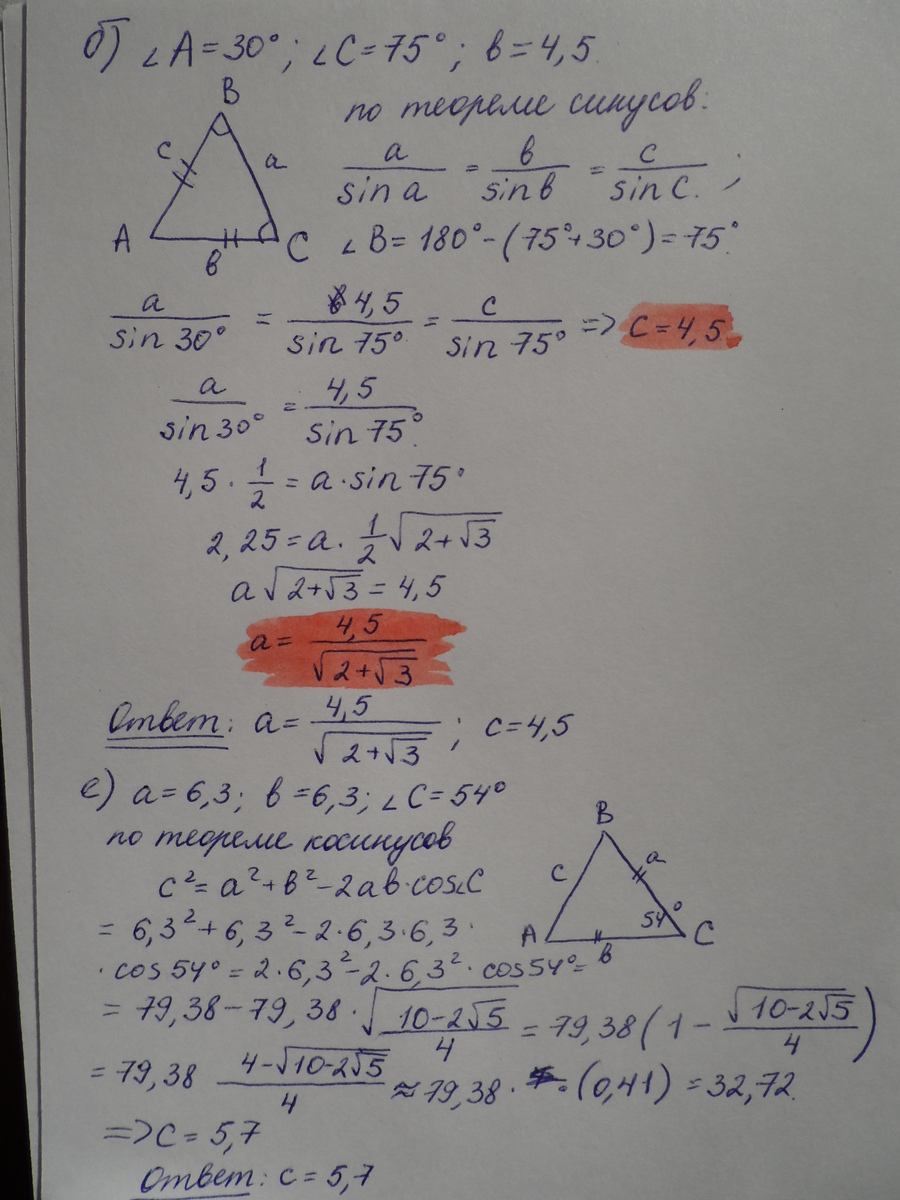 б) ∠A=30°; ∠C=75°; в=4,5
B
по теореме синусов:
c a
a/sin a = в/sin в = c/sin C. ;
A C
в
∠B=180°-(75°+30°)=75°
a/sin 30° = 4,5/sin 75° = c/sin 75° => c=4,5
a/sin 30° = 4,5/sin 75°
4,5 · 1/2 = a · sin 75°
2,25 = a · 1/2 √(2+√3)
a√(2+√3) = 4,5
a = 4,5/√(2+√3)
Ответ: a = 4,5/√(2+√3); c=4,5
е) a=6,3; в=6,3; ∠C=54°
по теореме косинусов
B
c a
54°
A C
в
c²= a²+в²-2aв·cos∠C
= 6,3²+6,3²-2·6,3·6,3·
·cos54°= 2·6,3²-2·6,3²·cos54°=
= 79,38-79,38·√(10-2√5)/4 = 79,38(1-√(10-2√5)/4)
= 79,38 (4-√(10-2√5))/4 ≈ 79,38·(0,41) = 32,72
=> c = 5,7
Ответ: c = 5,7